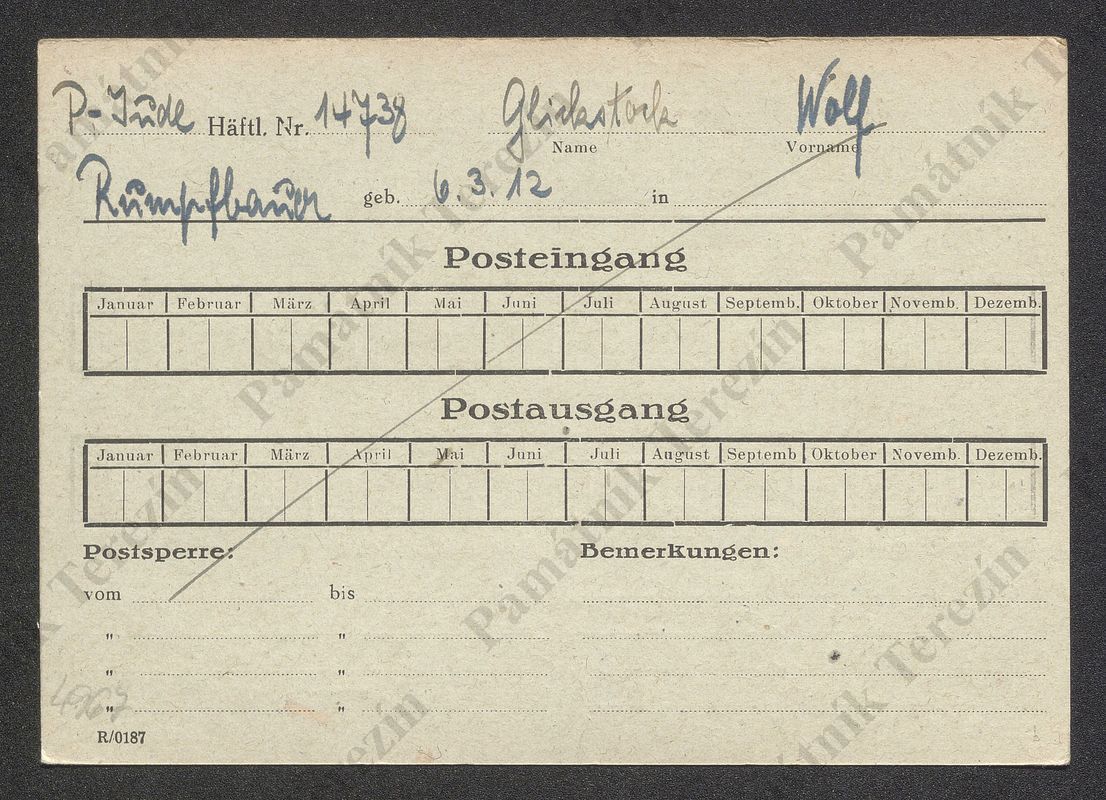 P-Jude Häftl. Nr. 14738 Glickstock Wolf
Name Vorname
geb. 6.3.12 in
Posteingang
Januar Februar März April Mai Juni Juli August Septemb. Oktober Novemb. Dezemb.
Postausgang
Januar Februar März April Mai Juni Juli August Septemb Oktober Novemb. Dezemb.
Postsperre: Bemerkungen:
vom bis
" "
" "
" "
R/0187
Památník Terezín